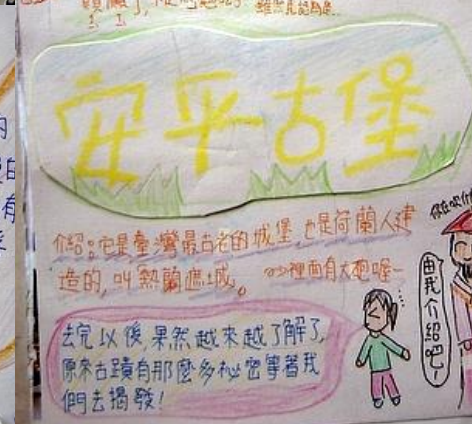 安平古堡
介紹：它是臺灣最古老的城堡，也是荷蘭人建
造的，叫熱蘭遮城。裡面有大砲喔~
由我介紹吧！
去完以後，果然越來越了解了，
原來古蹟有那麼多秘密等著我
們去揭發！